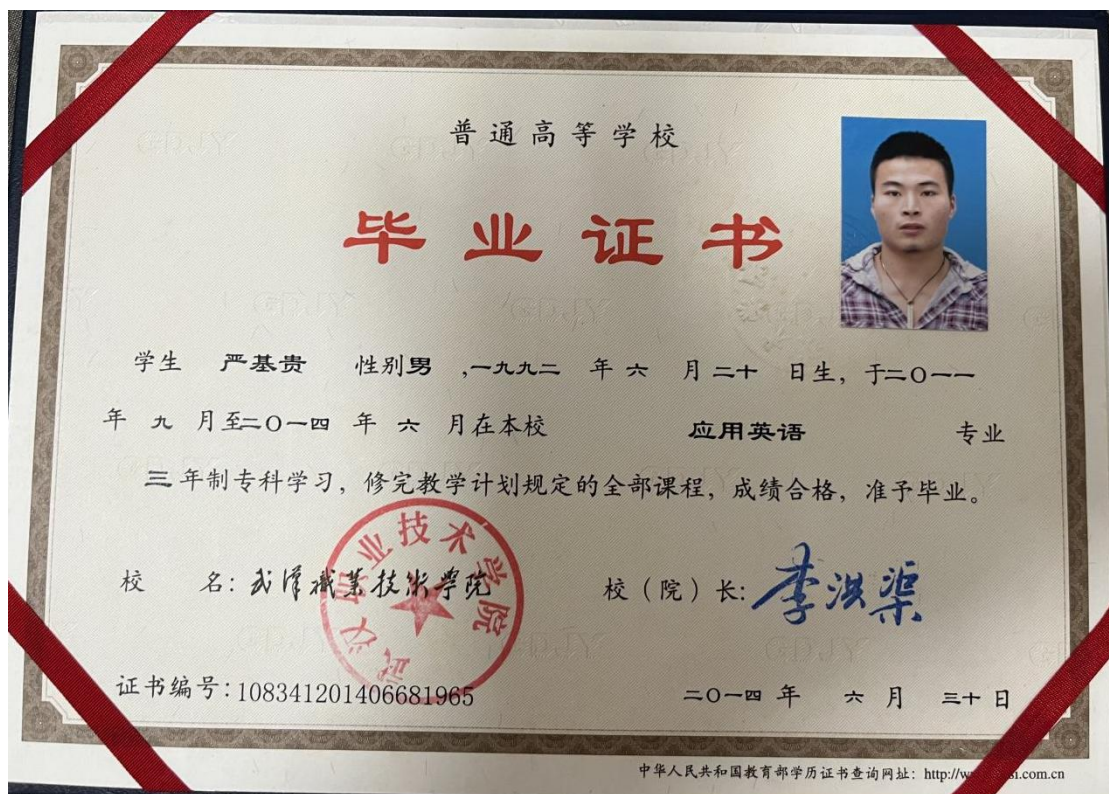 普通高等学校
毕业证书
学生 严基贵 性别男,一九九二 年 六 月 二十 日生，于二〇一一
年 九 月至二〇一四 年 六 月在本校 应用英语 专业
三 年制专科学习，修完教学计划规定的全部课程，成绩合格，准予毕业。
校 名：武汉职业技术学院
武汉职业技术学院
校（院）长：李洪渠
证书编号：108341201406681965
二〇一四 年 六 月 三十 日
中华人民共和国教育部学历证书查询网址：http://w si.com.cn